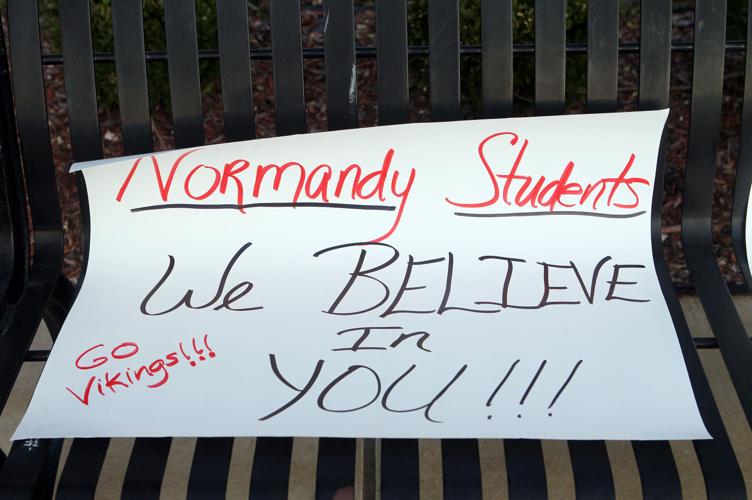 Normandy Students
We BELIEVE
In
YOU!!!
GO
Vikings!!!